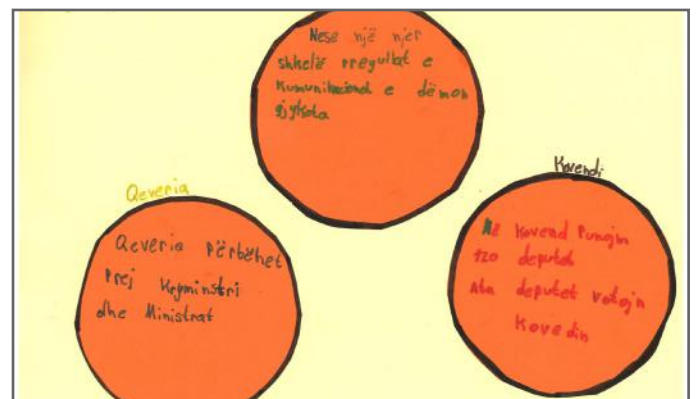 Nese një njer
shkelë rregullat e
Kumunikacionit e dëmon
gjykata
Qeveria
Qeveria Përbëhet
Prej Kryministri
dhe Ministrat
Kuvendi
Në Kovend Punojn
120 deputet
Ata deputet votojn
Kovedin